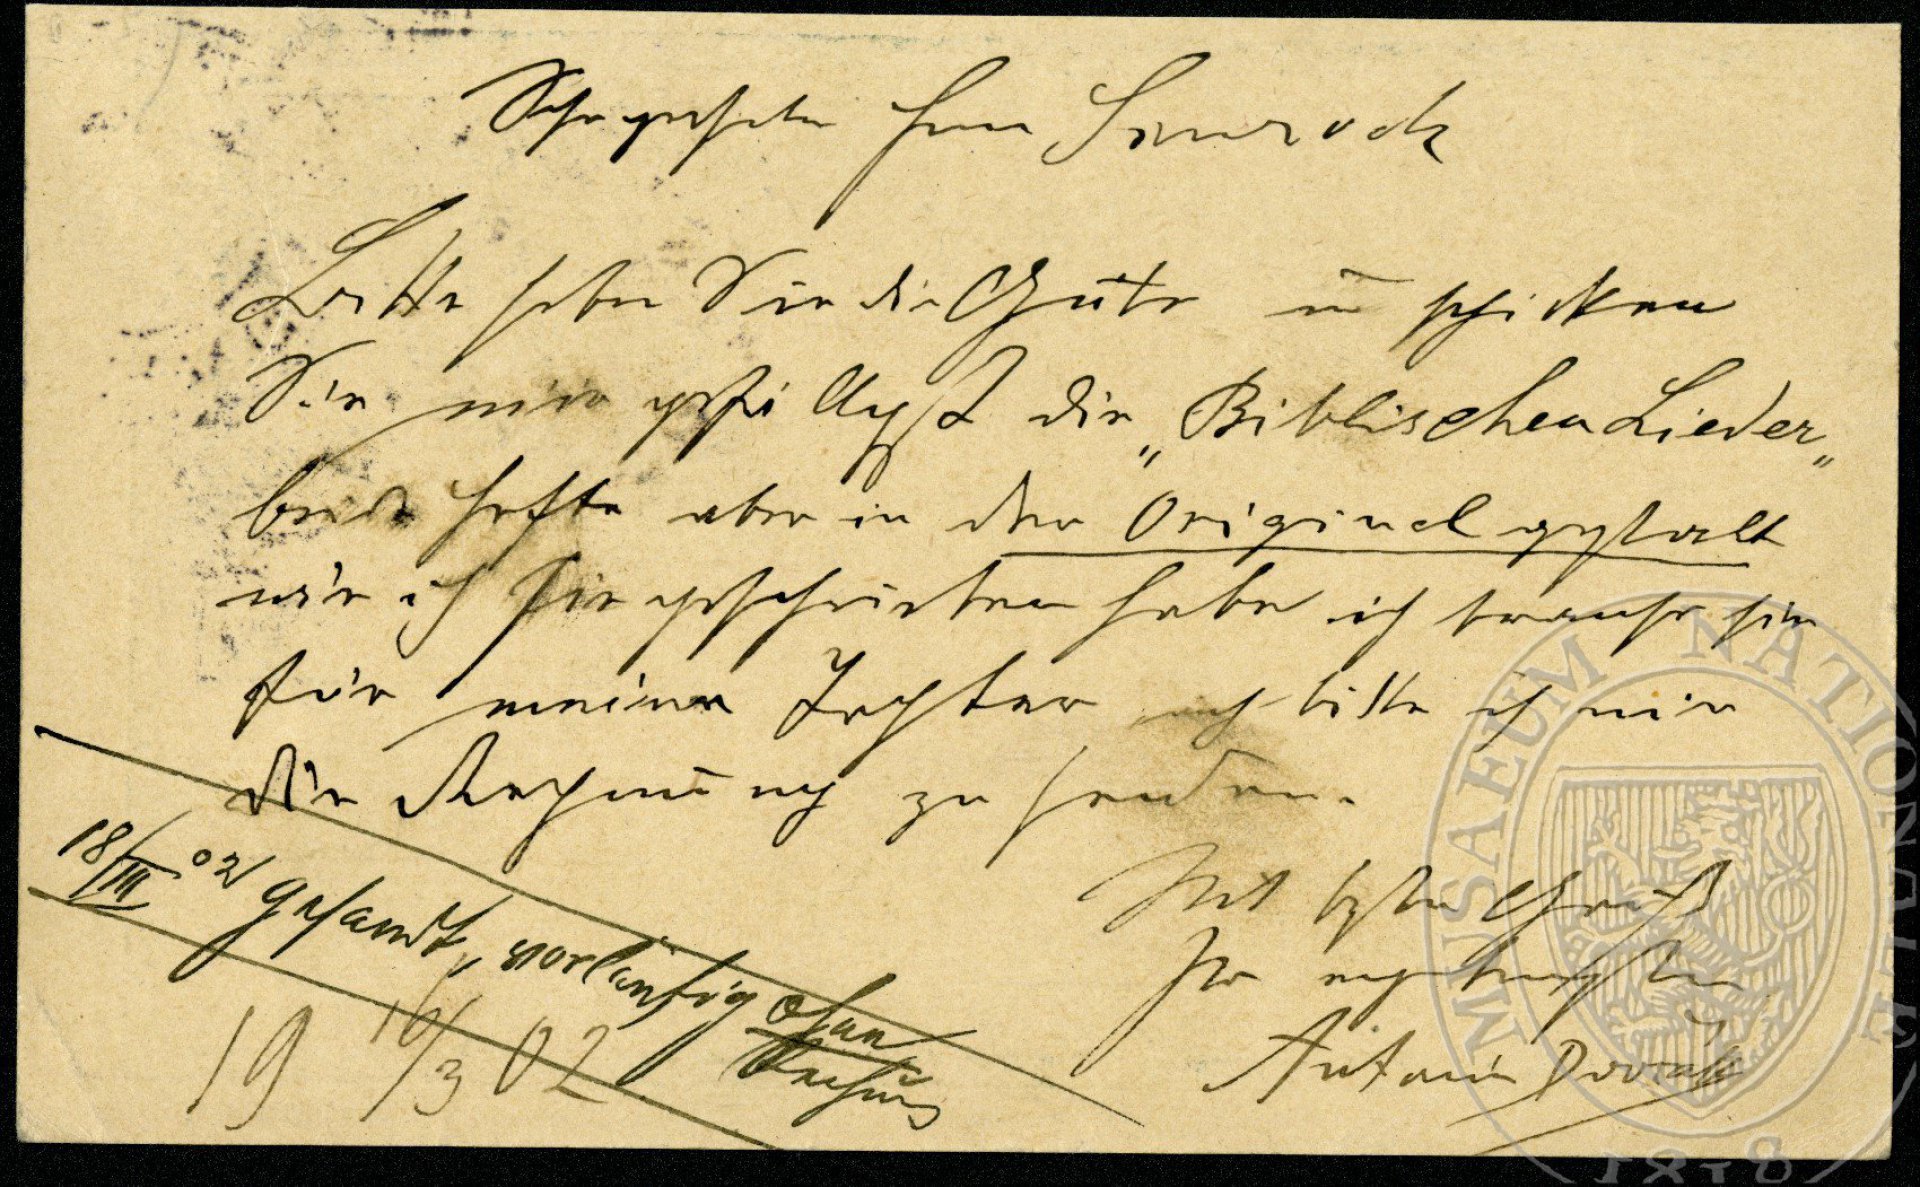 Sehr geehrter Herr Simrock
Bitte haben Sie die Güte u schicken
Sie mir gefälligst die „Biblischen Lieder„
beide Hefte aber in der Originalgestalt
wie ich sie geschrieben habe ich brauche sie
für meine Tochter auch bitte ich mir
die Rechnung zu senden.
Mit besten Gruß
Ihr ergebenster
Antonín Dvořák
18/III 02 gesandt, vorläufig ohne
Rechnung
19 16/3 02
MUSAEUM NATIONALE
1818